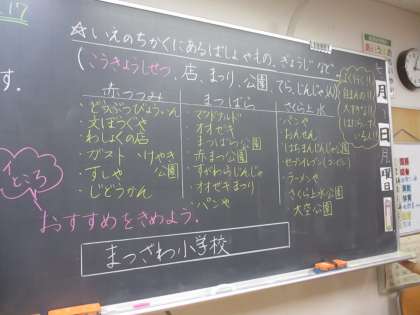 17
☆いえのちかくにあるばしょやもの、ぎょうじなど
(こうきょうしせつ、店、まつり、公園、てら、じんじゃ、川)
す。
赤つつみ
・どうぶつびょういん
・文ぼうぐや
・わしょくの店
・ガスト
・けやき公園
・すしや
・じどうかん
まつばら
・マクドナルド
・オオゼキ
・まつばら公園
・赤まつ公園
・すがわらじんじゃ
・オオゼキまつり
・パンや
さくら上水
・パンや
・おんせん
・はちまんじんじゃ公園
・セブンイレブン(コンビニ)
・ラーメンや
・さくら上水公園
・大空公園
よく行く!!
月
日
月曜日
ところ
おすすめをきめよう。
まつざわ小学校